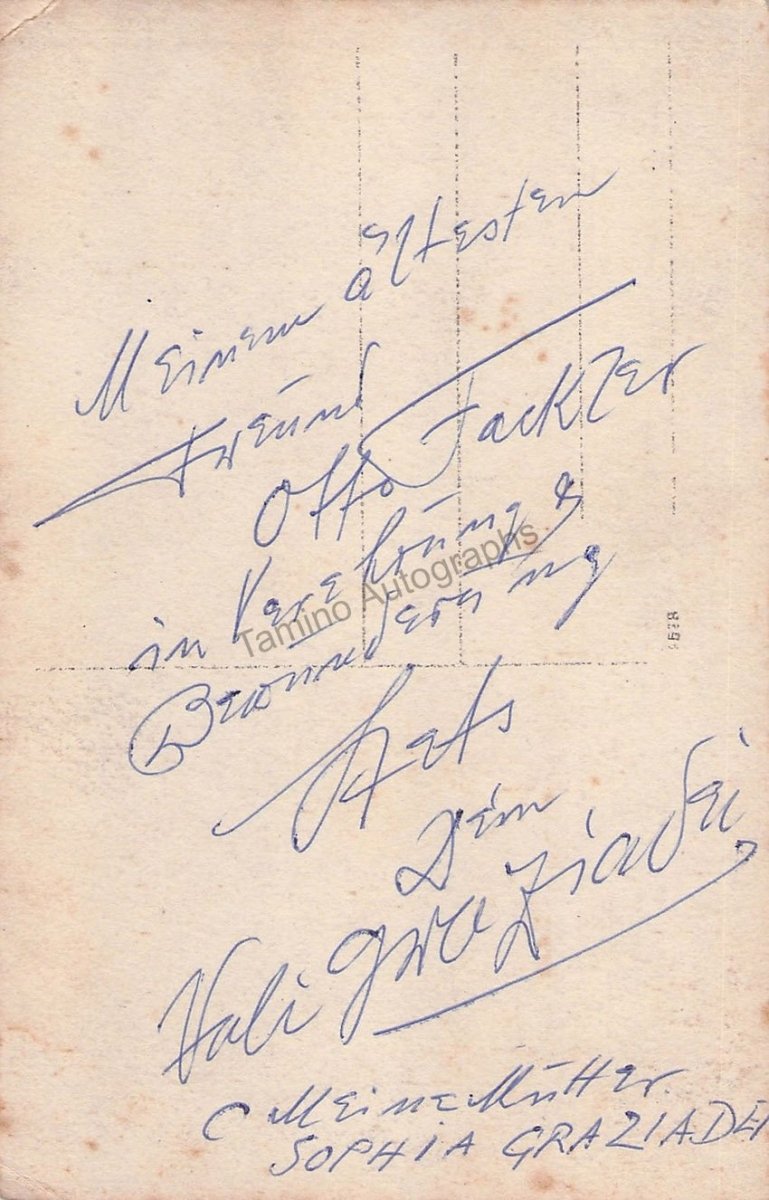 Meinem ältesten
Freund
Otto Fackler
in Verehrung &
Bewunderung
Tamino Autographs
stets
Dein
Vali Graziadei
Meine Mutter
SOPHIA GRAZIADEI